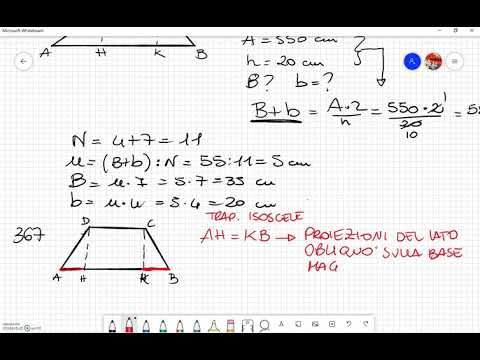 Microsoft Whiteboard
A H K B
A = 550 cm
h = 20 cm
B? b = ?
B+b = A·2/h = 550·2/20 = 55
1
10
N = 4+7 = 11
u = (B+b) : N = 55:11 = 5 cm
B = u·7 = 5·7 = 35 cm
b = u·4 = 5·4 = 20 cm
367
D C
A H K B
TRAP. ISOSCELE
AH = KB → PROIEZIONI DEL LATO
OBLIQUO SULLA BASE
MAG